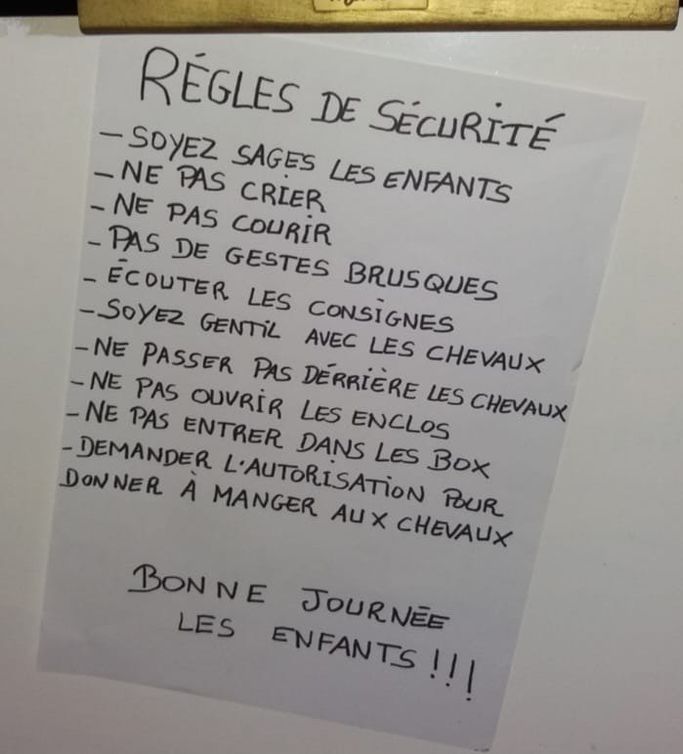 RÉGLES DE SÉCURITÉ
- SOYEZ SAGES LES ENFANTS
- NE PAS CRIER
- NE PAS COURIR
- PAS DE GESTES BRUSQUES
- ÉCOUTER LES CONSIGNES
- SOYEZ GENTIL AVEC LES CHEVAUX
- NE PASSER PAS DÉRRIÈRE LES CHEVAUX
- NE PAS OUVRIR LES ENCLOS
- NE PAS ENTRER DANS LES BOX
- DEMANDER L'AUTORISATION POUR
DONNER À MANGER AUX CHEVAUX
BONNE JOURNÉE
LES ENFANTS!!!